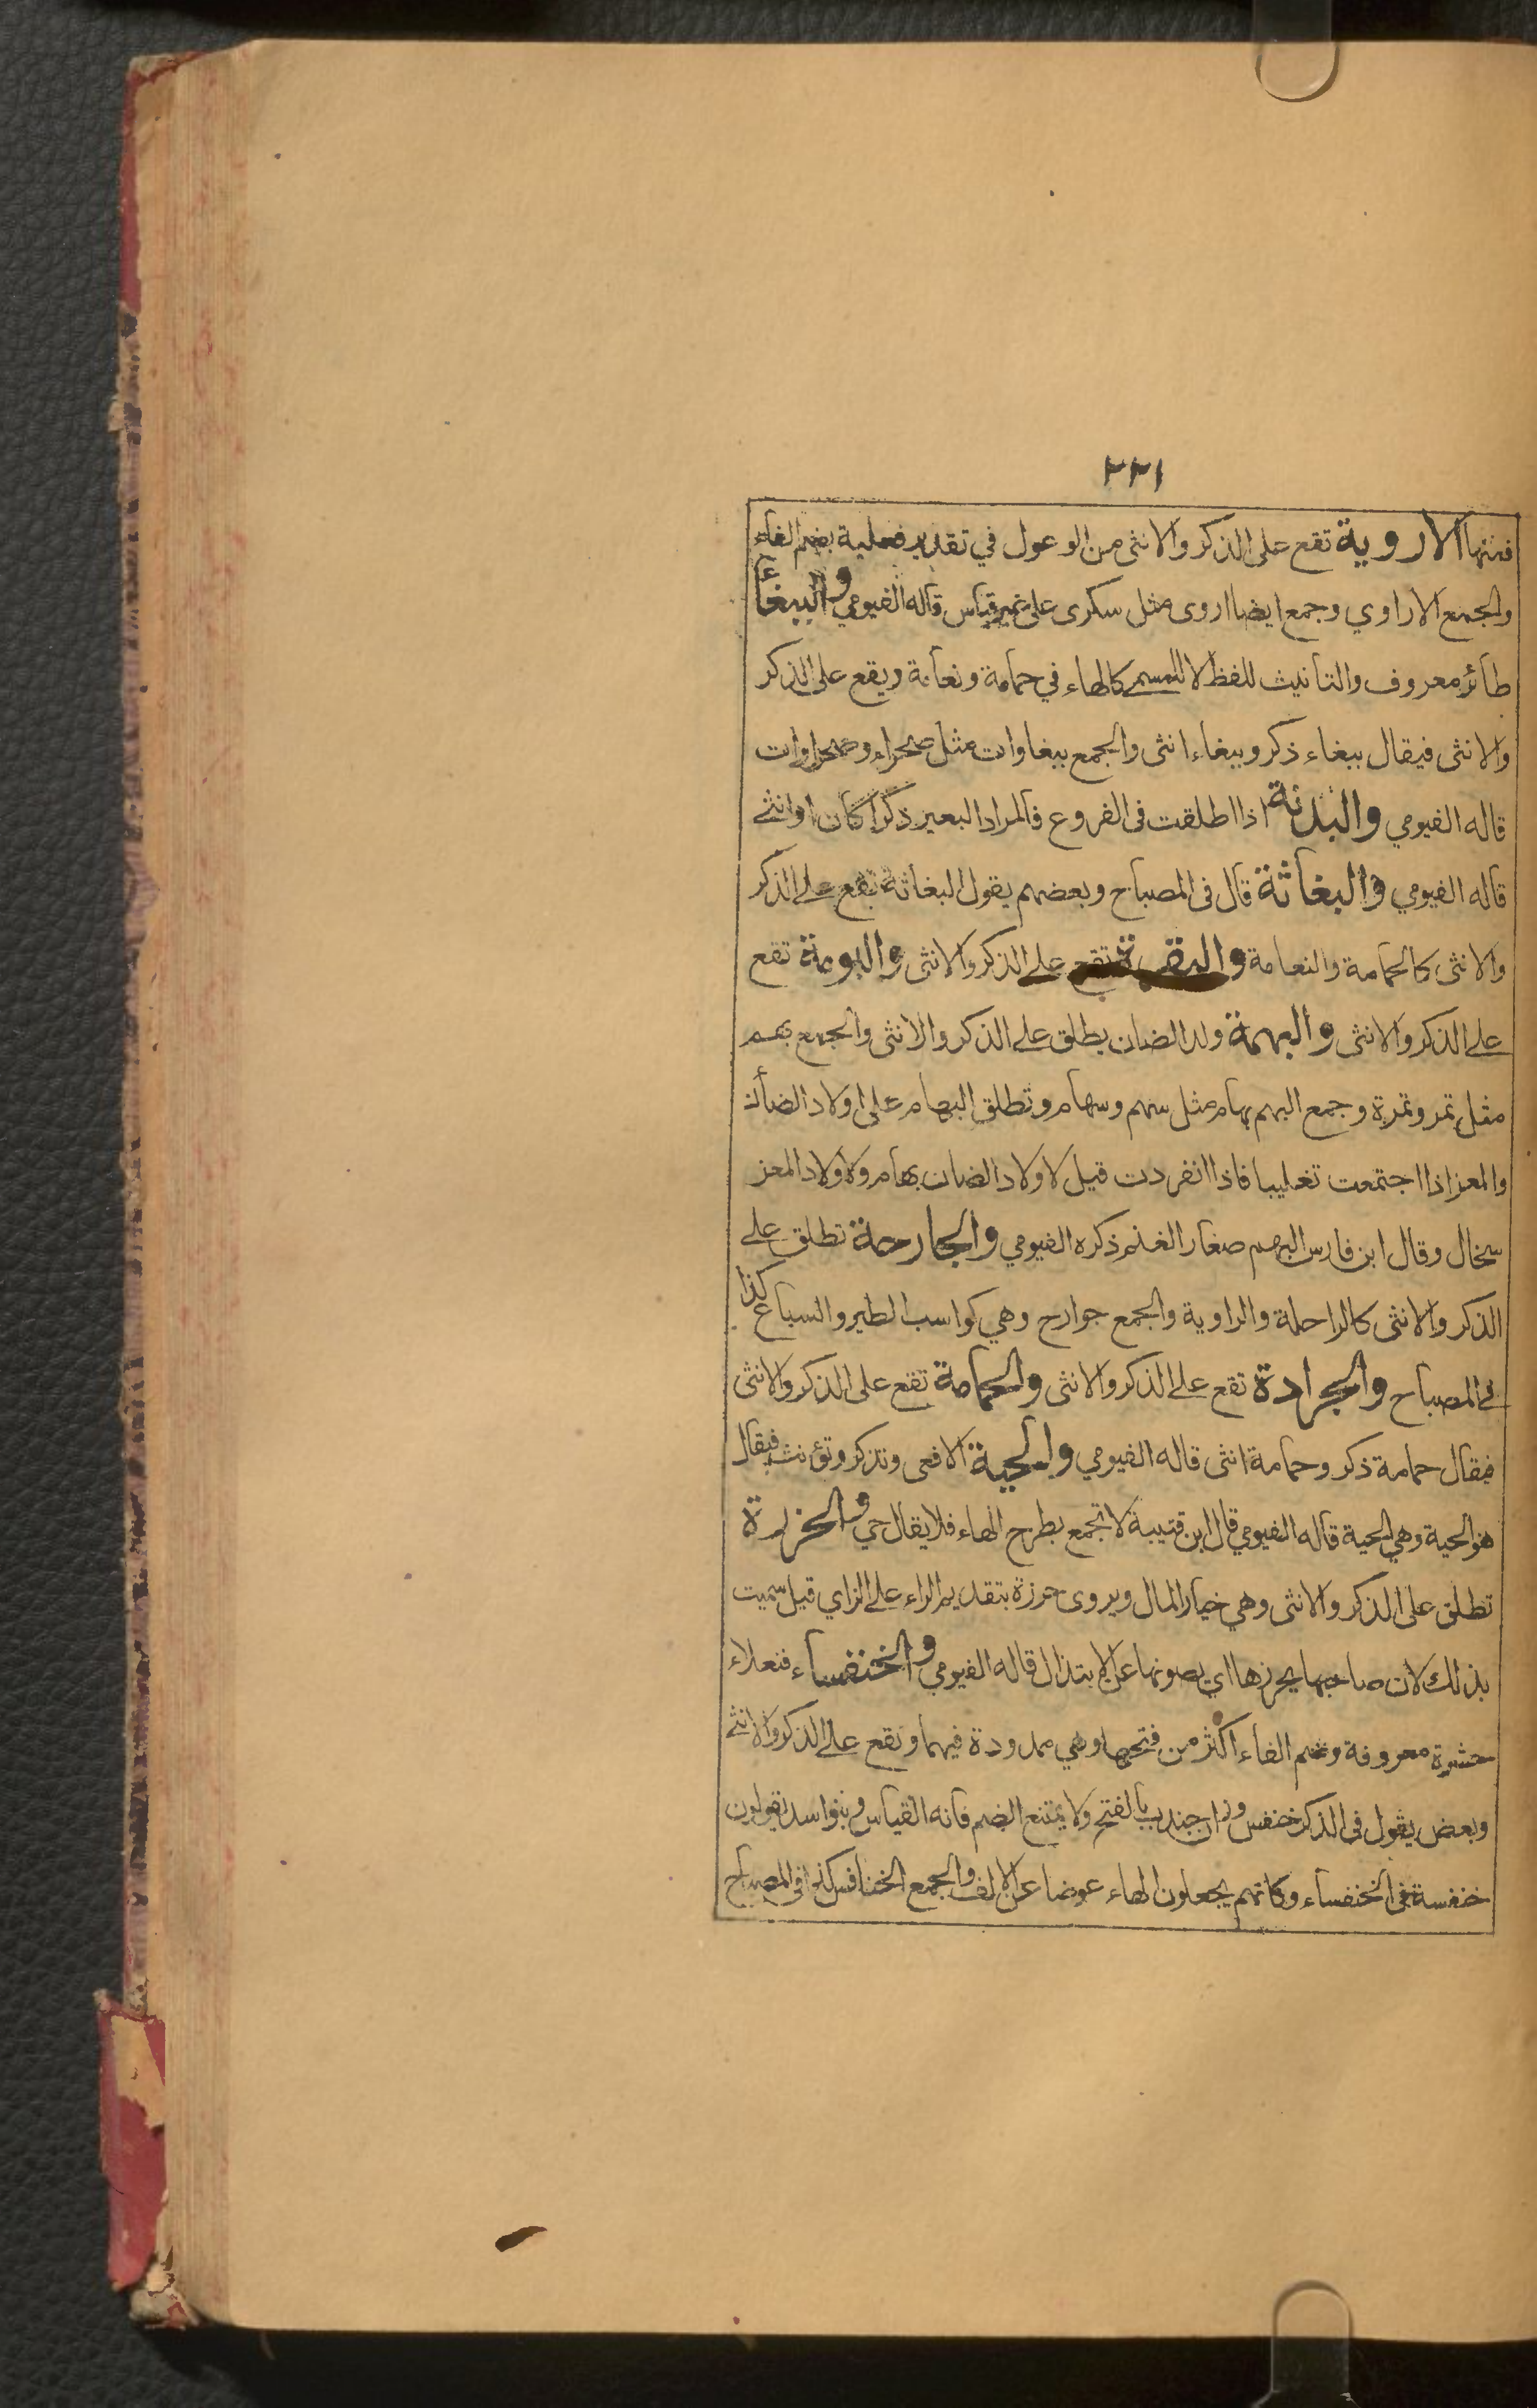 ٢٢١
فمنها الاروية تقع على الذكر والانثى من الوعول في تقدير فعلية بضم الفاء
والجمع الاراوي وجمع ايضا اروى مثل سكرى على غير قياس قاله الفيومي والببغأ
طائر معروف والتانيث للفظ لا للمسمى كالهاء في حمامة ونعامة ويقع على الذكر
والانثى فيقال ببغاء ذكر وببغاء انثى والجمع ببغاوات مثل صحراء وصحراوات
قاله الفيومي والبدنة اذا اطلقت فى الفروع فالمراد البعير ذكرا كان او انثى
قاله الفيومي والبغاثة قال فى المصباح وبعضهم يقول البغاثة تقع على الذكر
والانثى كالحمامة والنعامة والبقرة تقع على الذكر والانثى والبومة تقع
على الذكر والانثى والبهمة ولد الضان يطلق على الذكر والانثى والجمع بهم
مثل تمر وتمرة وجمع البهم بهام مثل سهم وسهام وتطلق البهام على اولاد الضأن
والمعز اذا اجتمعت تغليبا فاذا انفردت قيل لاولاد الضان بهام ولاولاد المعز
سخال وقال ابن فارس البهم صغار الغنم ذكره الفيومي والجارحة تطلق على
الذكر والانثى كالراحلة والراوية والجمع جوارح وهي كواسب الطير والسباع كذا
في المصباح والجرادة تقع على الذكر والانثى والحمامة تقع على الذكر والانثى
فيقال حمامة ذكر وحمامة انثى قاله الفيومي والحية الافعى وتذكر وتؤنث فيقال
هو الحية وهي الحية قاله الفيومي قال ابن قتيبة لا تجمع بطرح الهاء فلا يقال حي والحزرة
تطلق على الذكر والانثى وهي خيار المال ويروى حرزة بتقديم الراء على الزاي قيل سميت
بذلك لان صاحبها يحرزها اي يصونها عن الابتذال قاله الفيومي والخنفساء فنعلاء
حشرة معروفة وضم الفاء اكثر من فتحها وهي ممدودة فيهما وتقع على الذكر والانثى
وبعض يقول فى الذكر خنفس وزان جندب بالفتح ولا يمتنع الضم فانه القياس وبنو اسد تقولون
خنفسة فى الخنفساء وكانهم يجعلون الهاء عوضا عن الالف والجمع الخنافس كذا فى المصباح